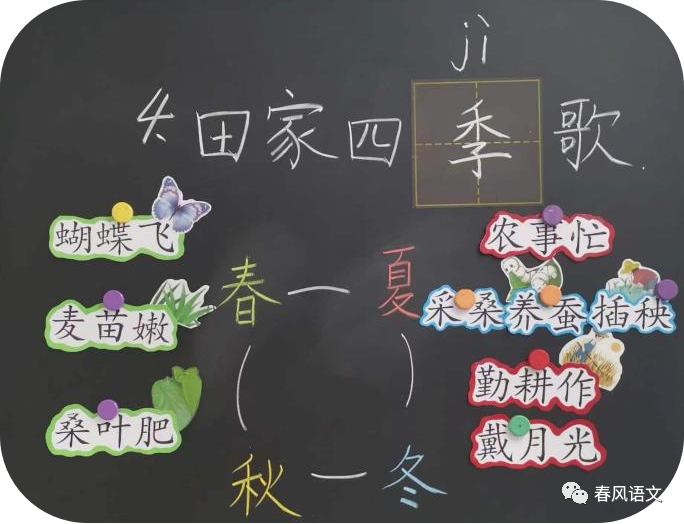 jì
4、田家四季歌
蝴蝶飞
农事忙
春一夏
麦苗嫩
采桑养蚕 插秧
勤耕作
桑叶肥
戴月光
秋一冬
春风语文